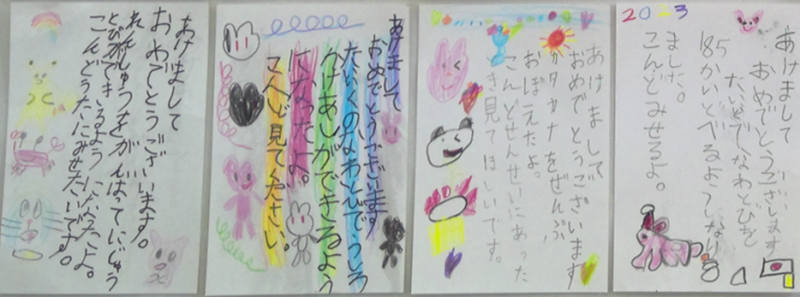 あけまして
おめでとうございます。
れんしゅうをがんばってにじゅう
とびができるようになったよ。
こんどうたにみせたいです。
あけまして
おめでとうございます
たいくのなわとびでうしろ
かけあしができるよう
になったよ。
こんど見てください。
あけまして
おめでとうございます
カタカナをぜんぶ
おぼえたよ。
こんどせんせいにあった
とき見てほしいです。
2023
あけまして
おめでとうございます
なわとびを
185かいとべるようになり
ました。
こんどみせるよ。